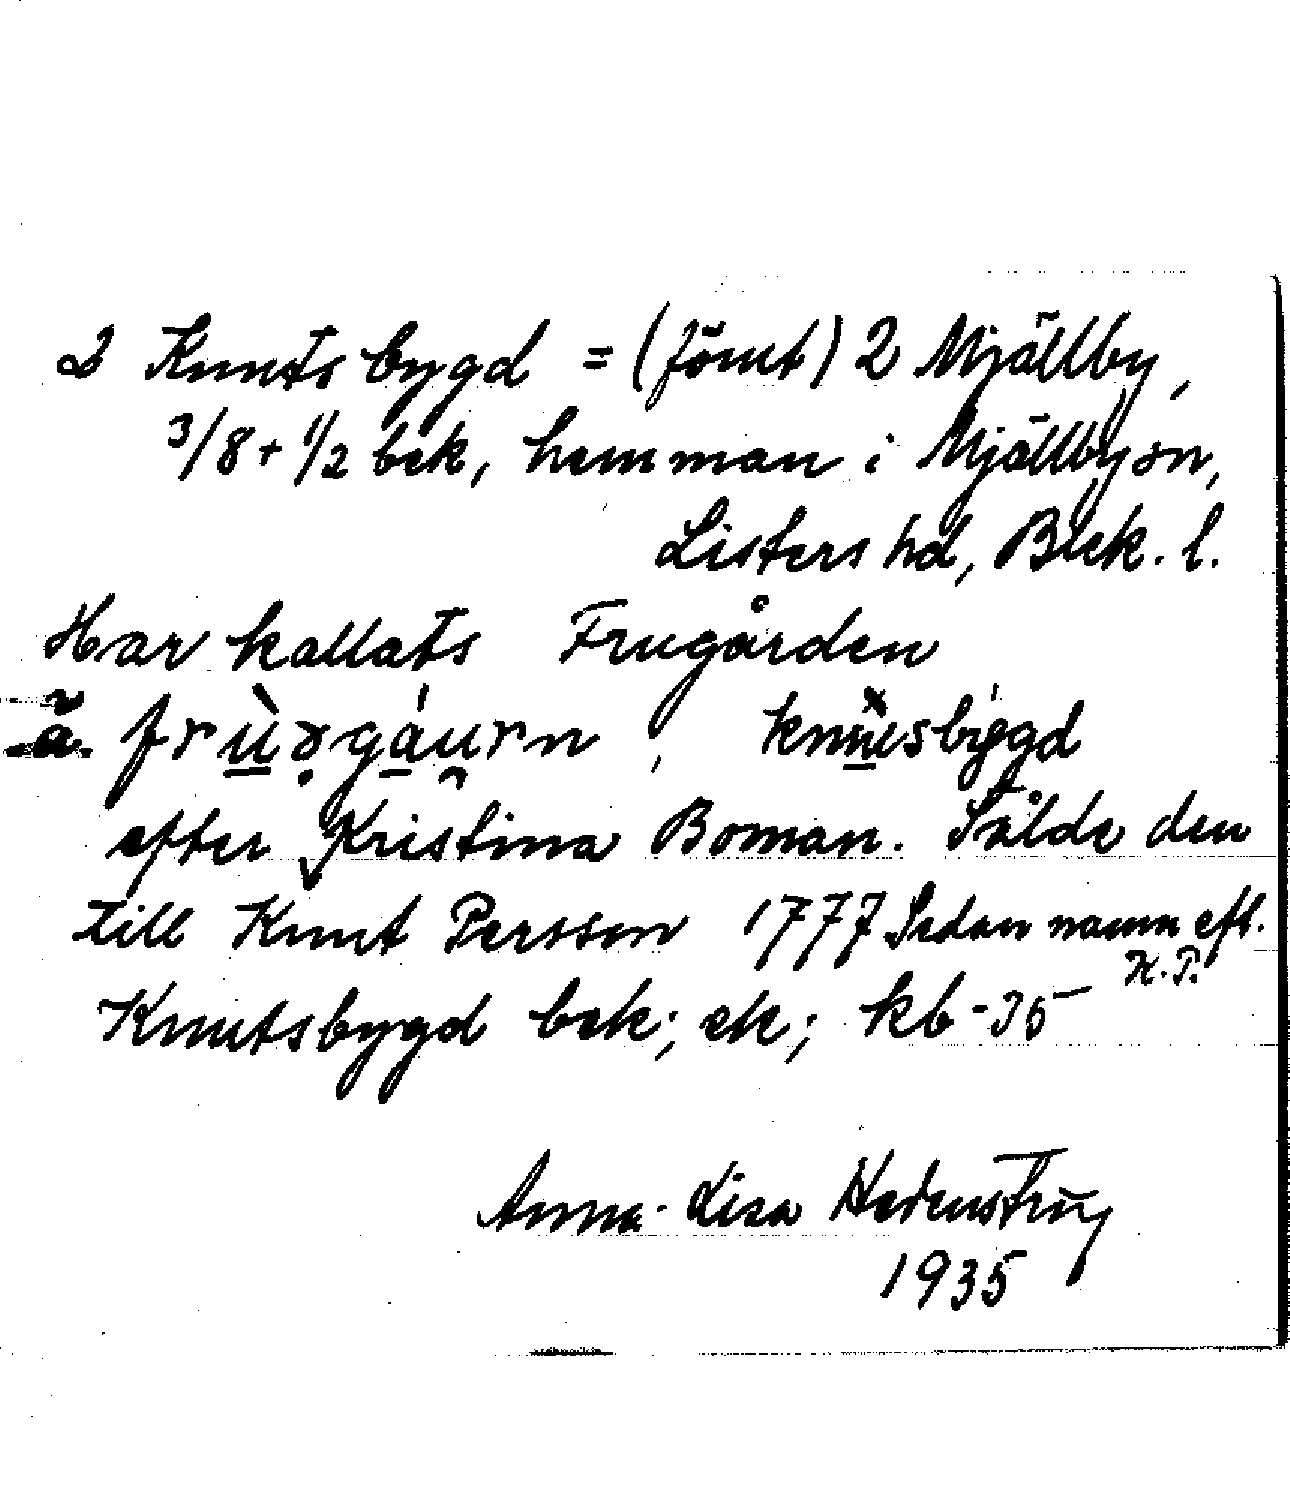 2 Knutsbygd = (förut) 2 Mjällby,
3/8 + 1/2 bek, hemman i Mjällby sn,
Listers hd, Blek. l.
Har kallats Frugården
frùəgáurn, knùesbýgd
efter Kristina Boman. Sålde den
till Knut Persson 1777 Sedan namn eft.
K. P.
Knutsbygd bek; ek; kb -35
Anna-Lisa Hedenström
1935